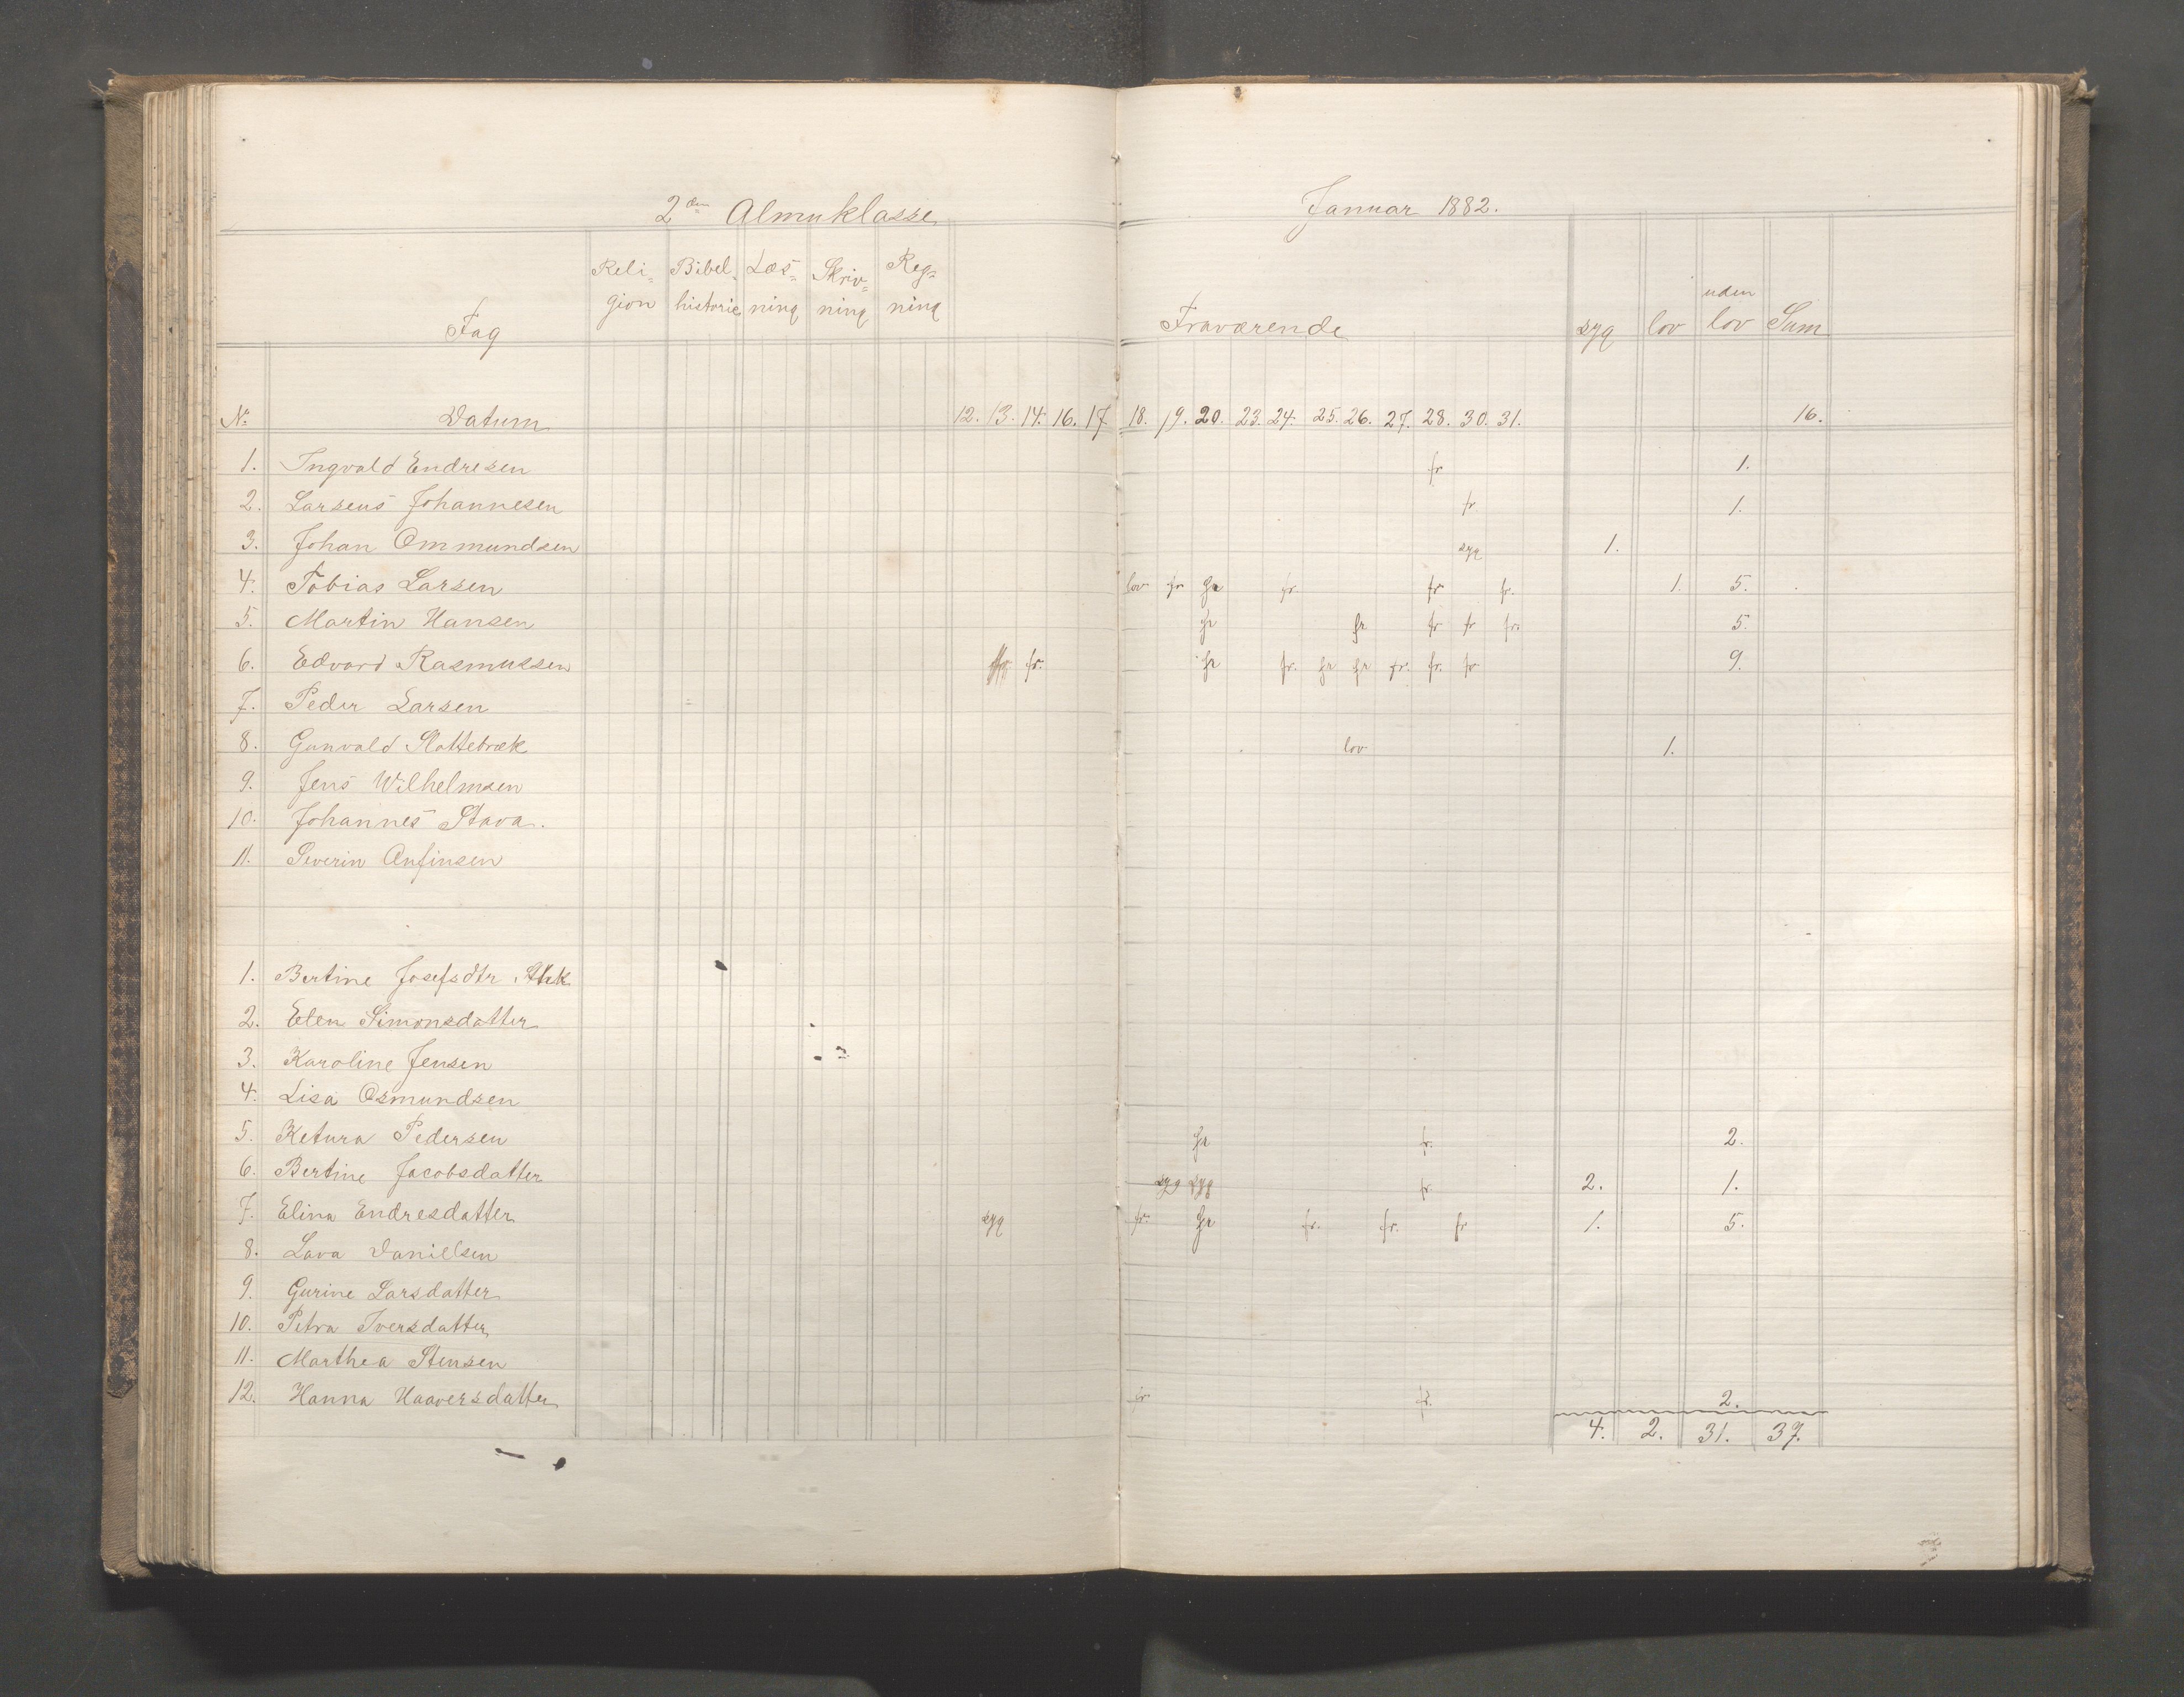 2den Almuklasse
Januar 1882.
Fag Reli= gion Bibel= historie Læs= ning Skriv= ning Reg= ning Fraværende syg lov uden lov Sum
No Datum 12. 13. 14. 16. 17 18. 19. 20. 23. 24. 25. 26. 27. 28. 30. 31. 16.
1. Ingvald Endresen fr 1.
2. Larsens Johannesen fr. 1.
3. Johan Ommundsen syg 1.
4. Tobias Larsen lov fr fr fr. fr fr. 1. 5.
5. Martin Hansen fr fr fr fr fr. 5.
6. Edvard Rasmussen fr. fr fr. fr fr fr. fr. fr. 9.
7. Peder Larsen
8. Gunvald Slottebræk lov 1.
9. Jens Wilhelmsen
10. Johannes Stava.
11. Severin Anfinsen
1. Bertine Josefsdtr.
2. Elen Simonsdatter
3. Karoline Jensen
4. Lisa Osmundsen
5. Ketura Pedersen fr fr. 2.
6. Bertine Jacobsdatter syg syg fr. 2. 1.
7. Elina Endresdatter syg fr. fr fr. fr. fr 1. 5.
8. Lava Danielsen
9. Gurine Larsdatter
10. Petra Iversdatter
11. Marthea Stensen
12. Hanna Haaversdatter fr fr. 2.
4. 2. 31. 37.